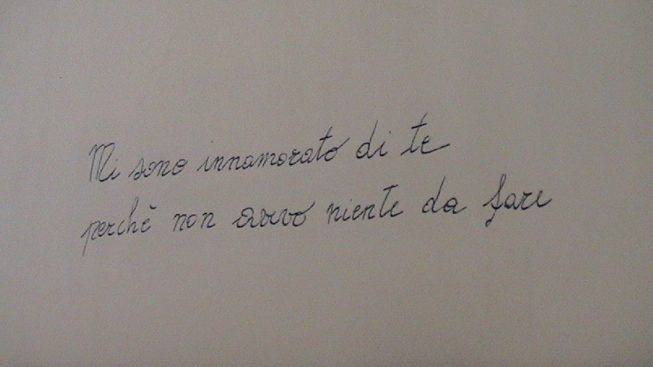 Mi sono innamorato di te
perchè non avevo niente da fare